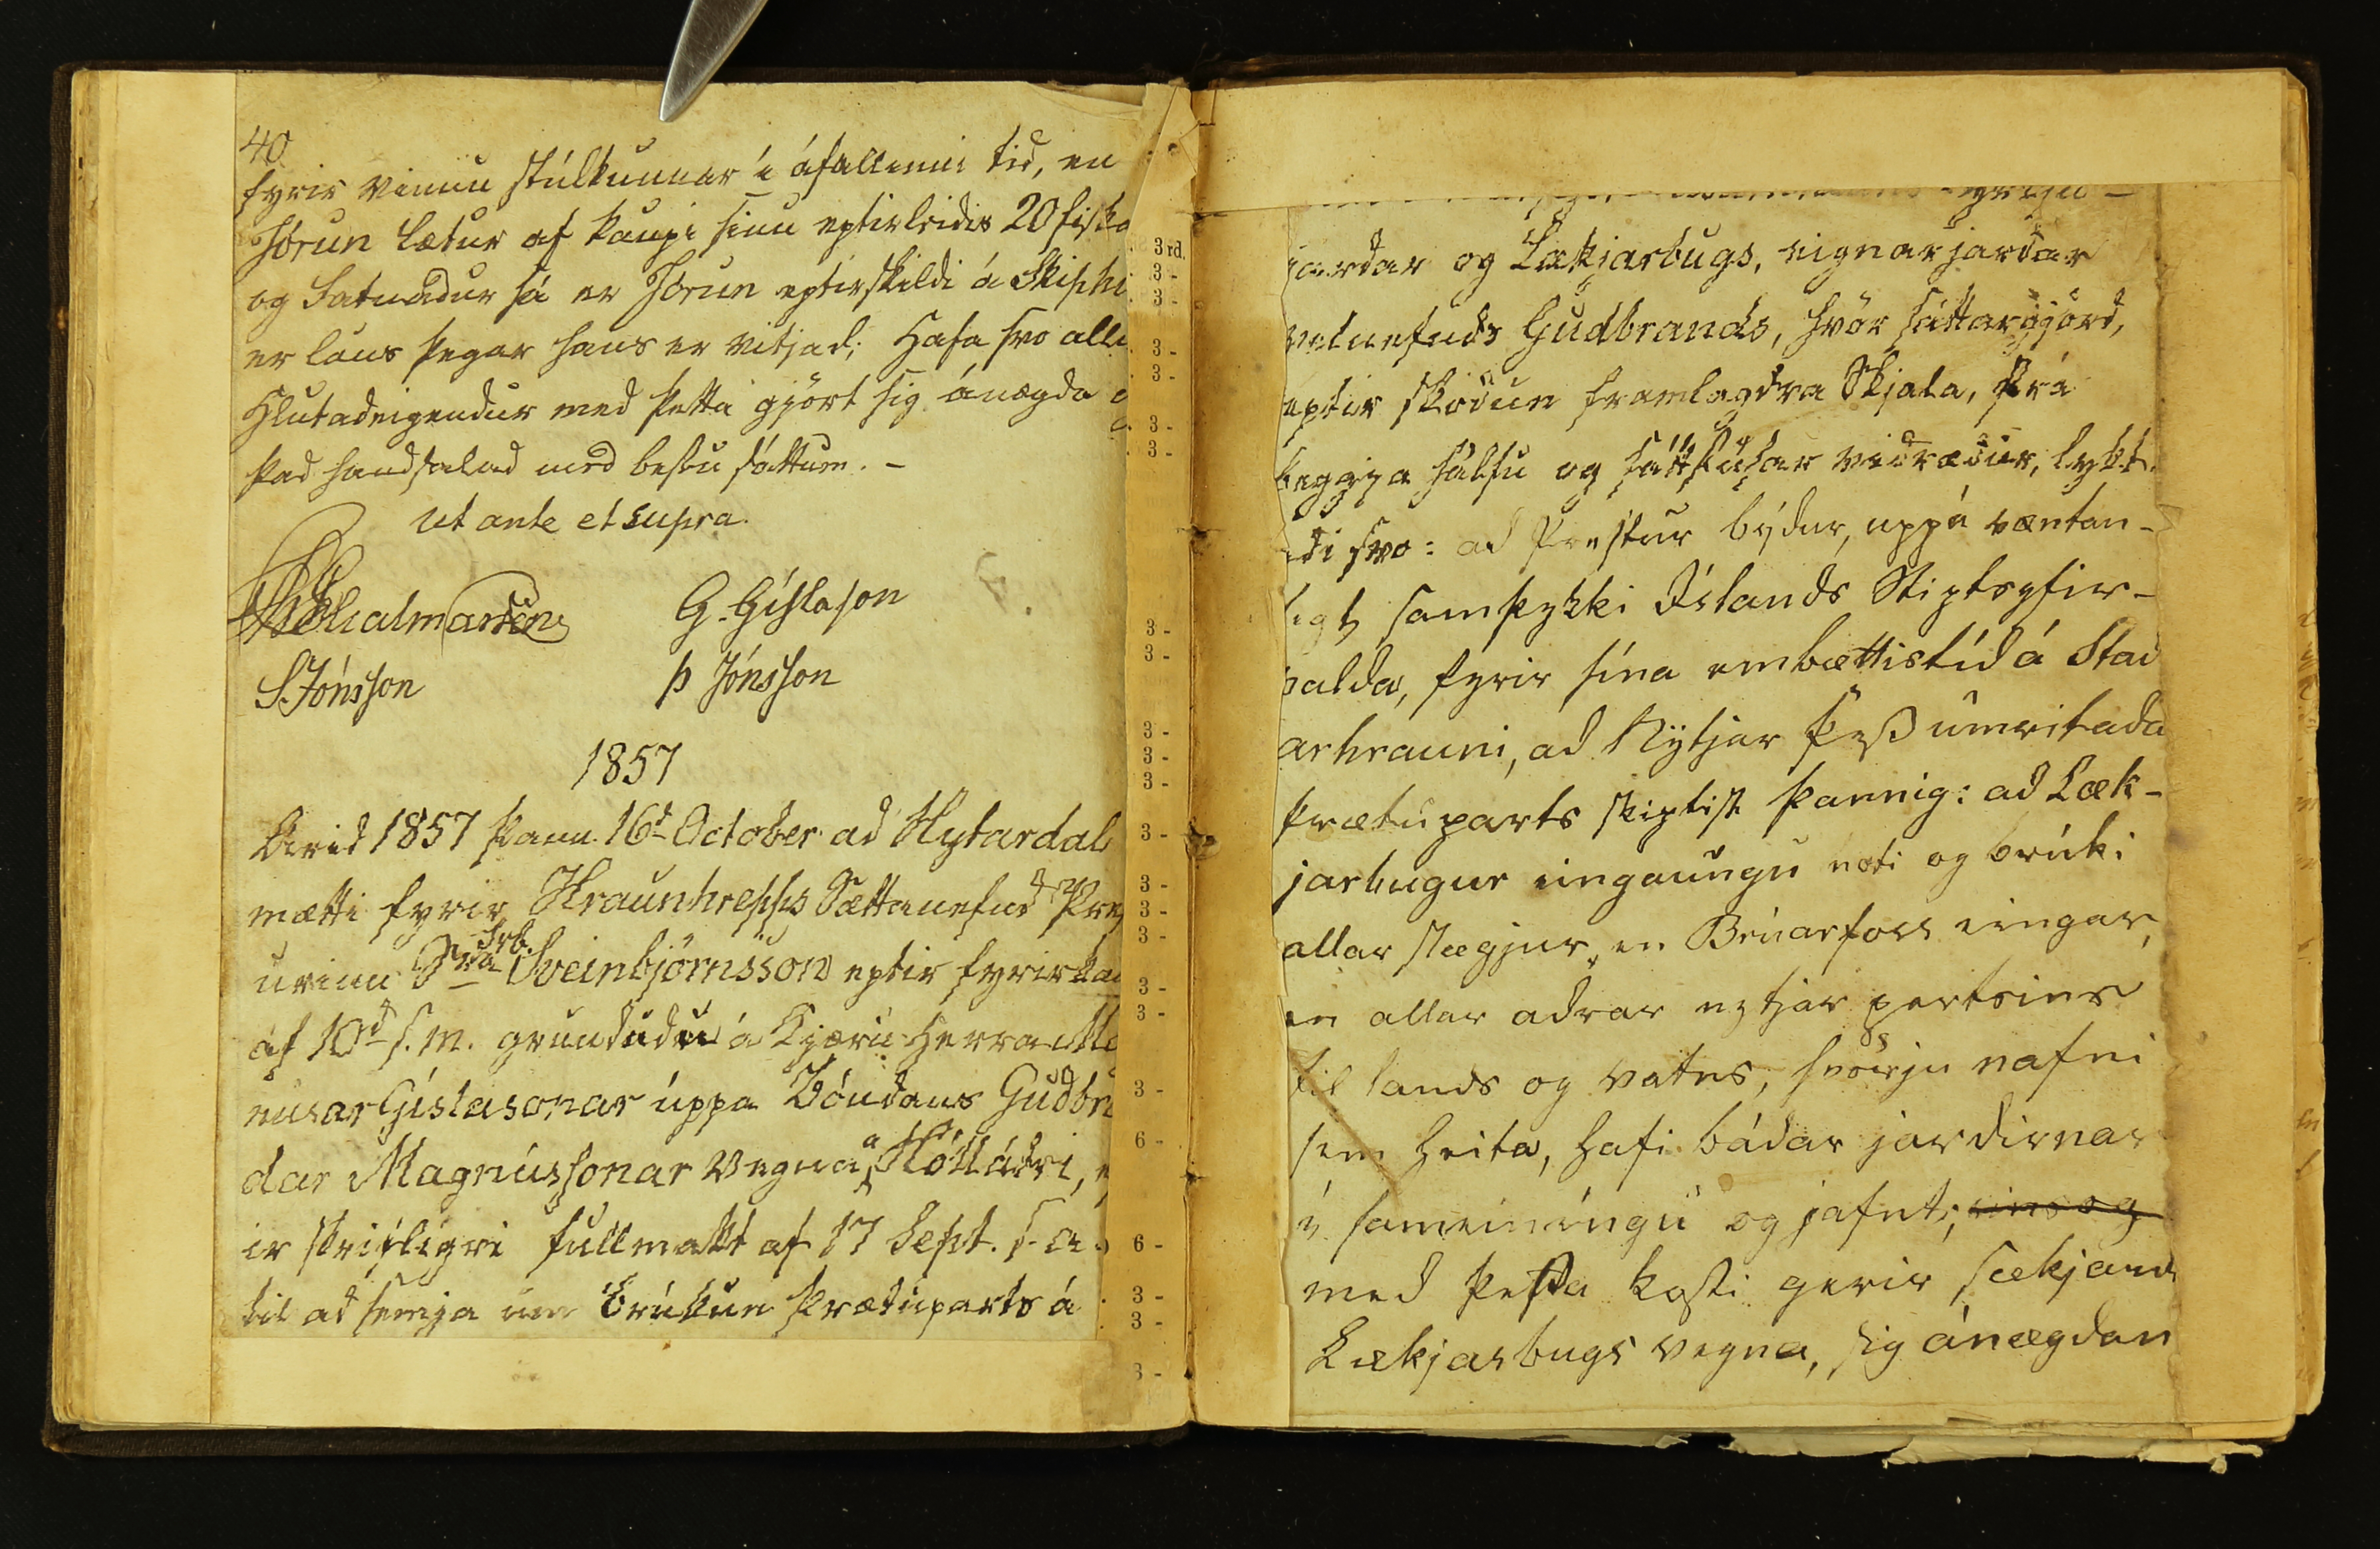 40
fyrir vinnu stúlkunnar í áfallinni tíd, en
Jórun lætur af kaupi sínu eptirleidis 20 fiska
og Fatnadur sá er Jórun eptirskildi á Skiphi
er laus þegar hans er vitjad; Hafa svo alli
Hlutadeigendur med þetta gjört sig ánægda
þad handsalad med bestu sáttum. –
ut ante et supra.
G. Gíslason
S. Jónsson
þ Jónsson
1857
Arid 1857 þann 16d October ad Hytardal
mætti fyrir Hraunhrepps Sættanefnd Pre
urinn Sra Srb. Sveinbjörnsson eptir fyrirka
af 10d s. m. grundudu á Kjæru Herra Ma
nusar Gíslasonar uppá Bóndans Gudbr
dar Magnússonar vegna á Hólládri, e
ir skrifligri fullmakt af 17 Sept. s. a.
til ad semja um brúkun þrætuparts á
jardar og Lækjarbugs, eignarjardar
velnefnds Gudbrands, hvör sáttargjörd,
eptir skodun framlagdra Skjala, frá
beggja hálfu og sáttfúsar vidrædur, lykt-
adi svo: ad Prestur býdur, uppá væntan-
legt samþykki Íslands Stiptsyfir-
valda, fyrir sína embættistíd á Stad
arhrauni, ad Nytjar þess umritada
þrætuparts skiptist þannig: ad Læk-
jarbugur eingaungu noti og brúki
allar slægjur, en Brúarfoss eingar,
en allar adrar nytjar partsins
til lands og vatns, hvörju nafni
sem heita, hafi bádar jardirnar
í sameiníngu og jafnt; eins og
med þessa kosti gerir sækjand
Lækjarbugs vegna, sig ánægdan
3 rd.
3 -
3 -
3 -
3 -
3 -
3 -
3 -
3 -
3 -
3 -
3 -
3 -
3 -
3 -
3 -
3 -
3 -
3 -
6 -
6 -
3 -
3 -
3 -